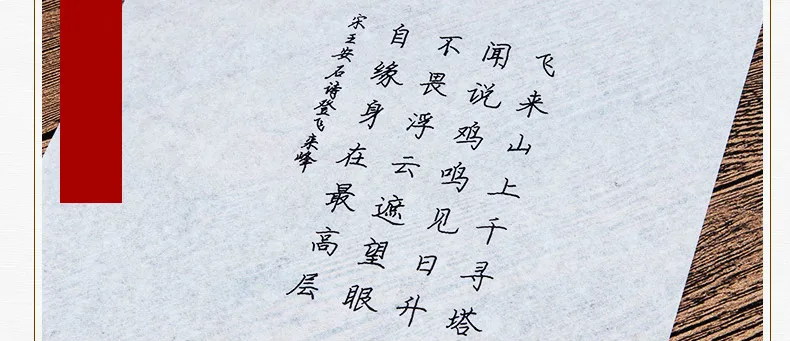 飞来山上千寻塔
闻说鸡鸣见日升
不畏浮云遮望眼
自缘身在最高层
宋王安石诗登飞来峰